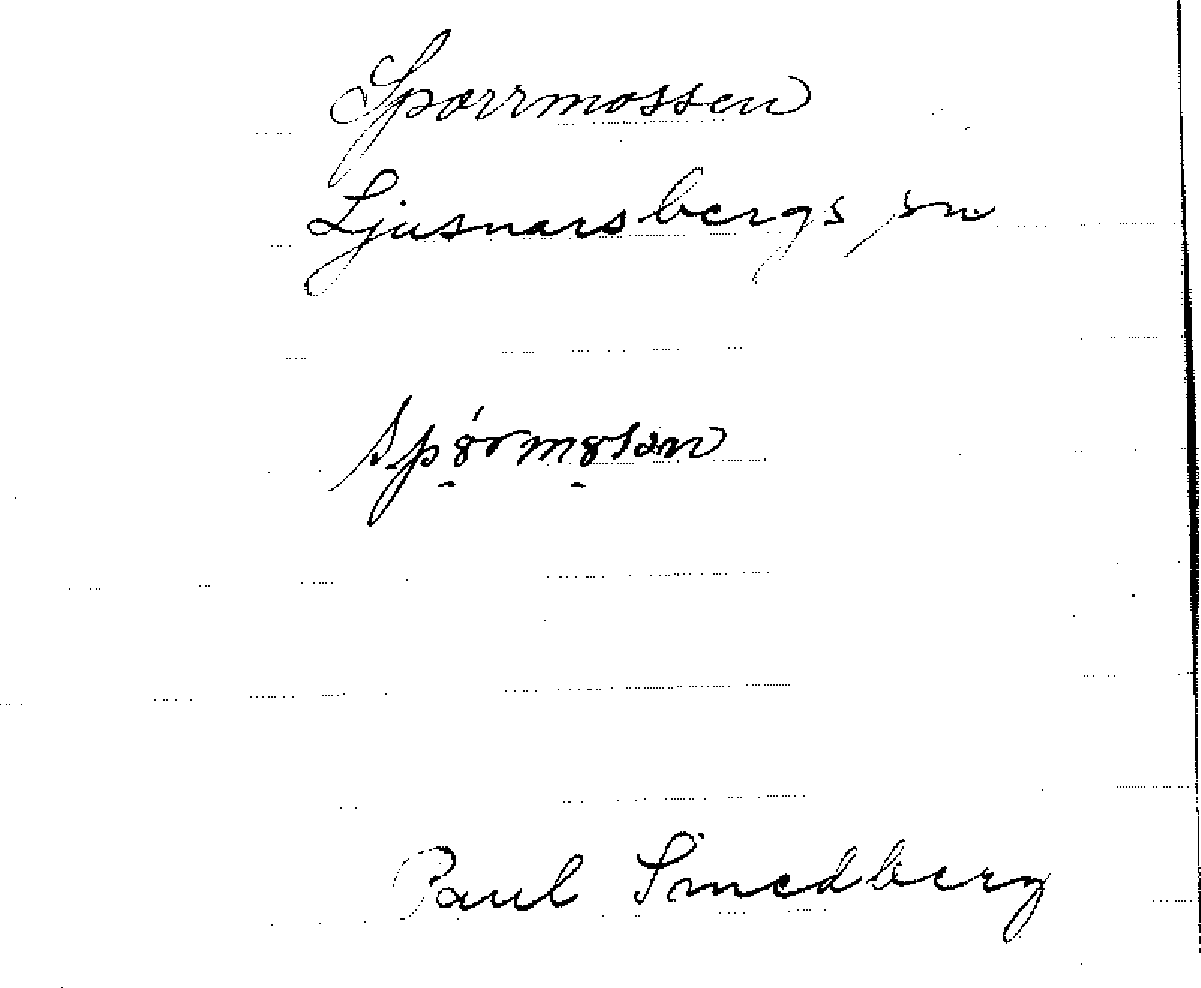 Sporrmossen
Ljusnarsbergs sn
Paul Smedberg